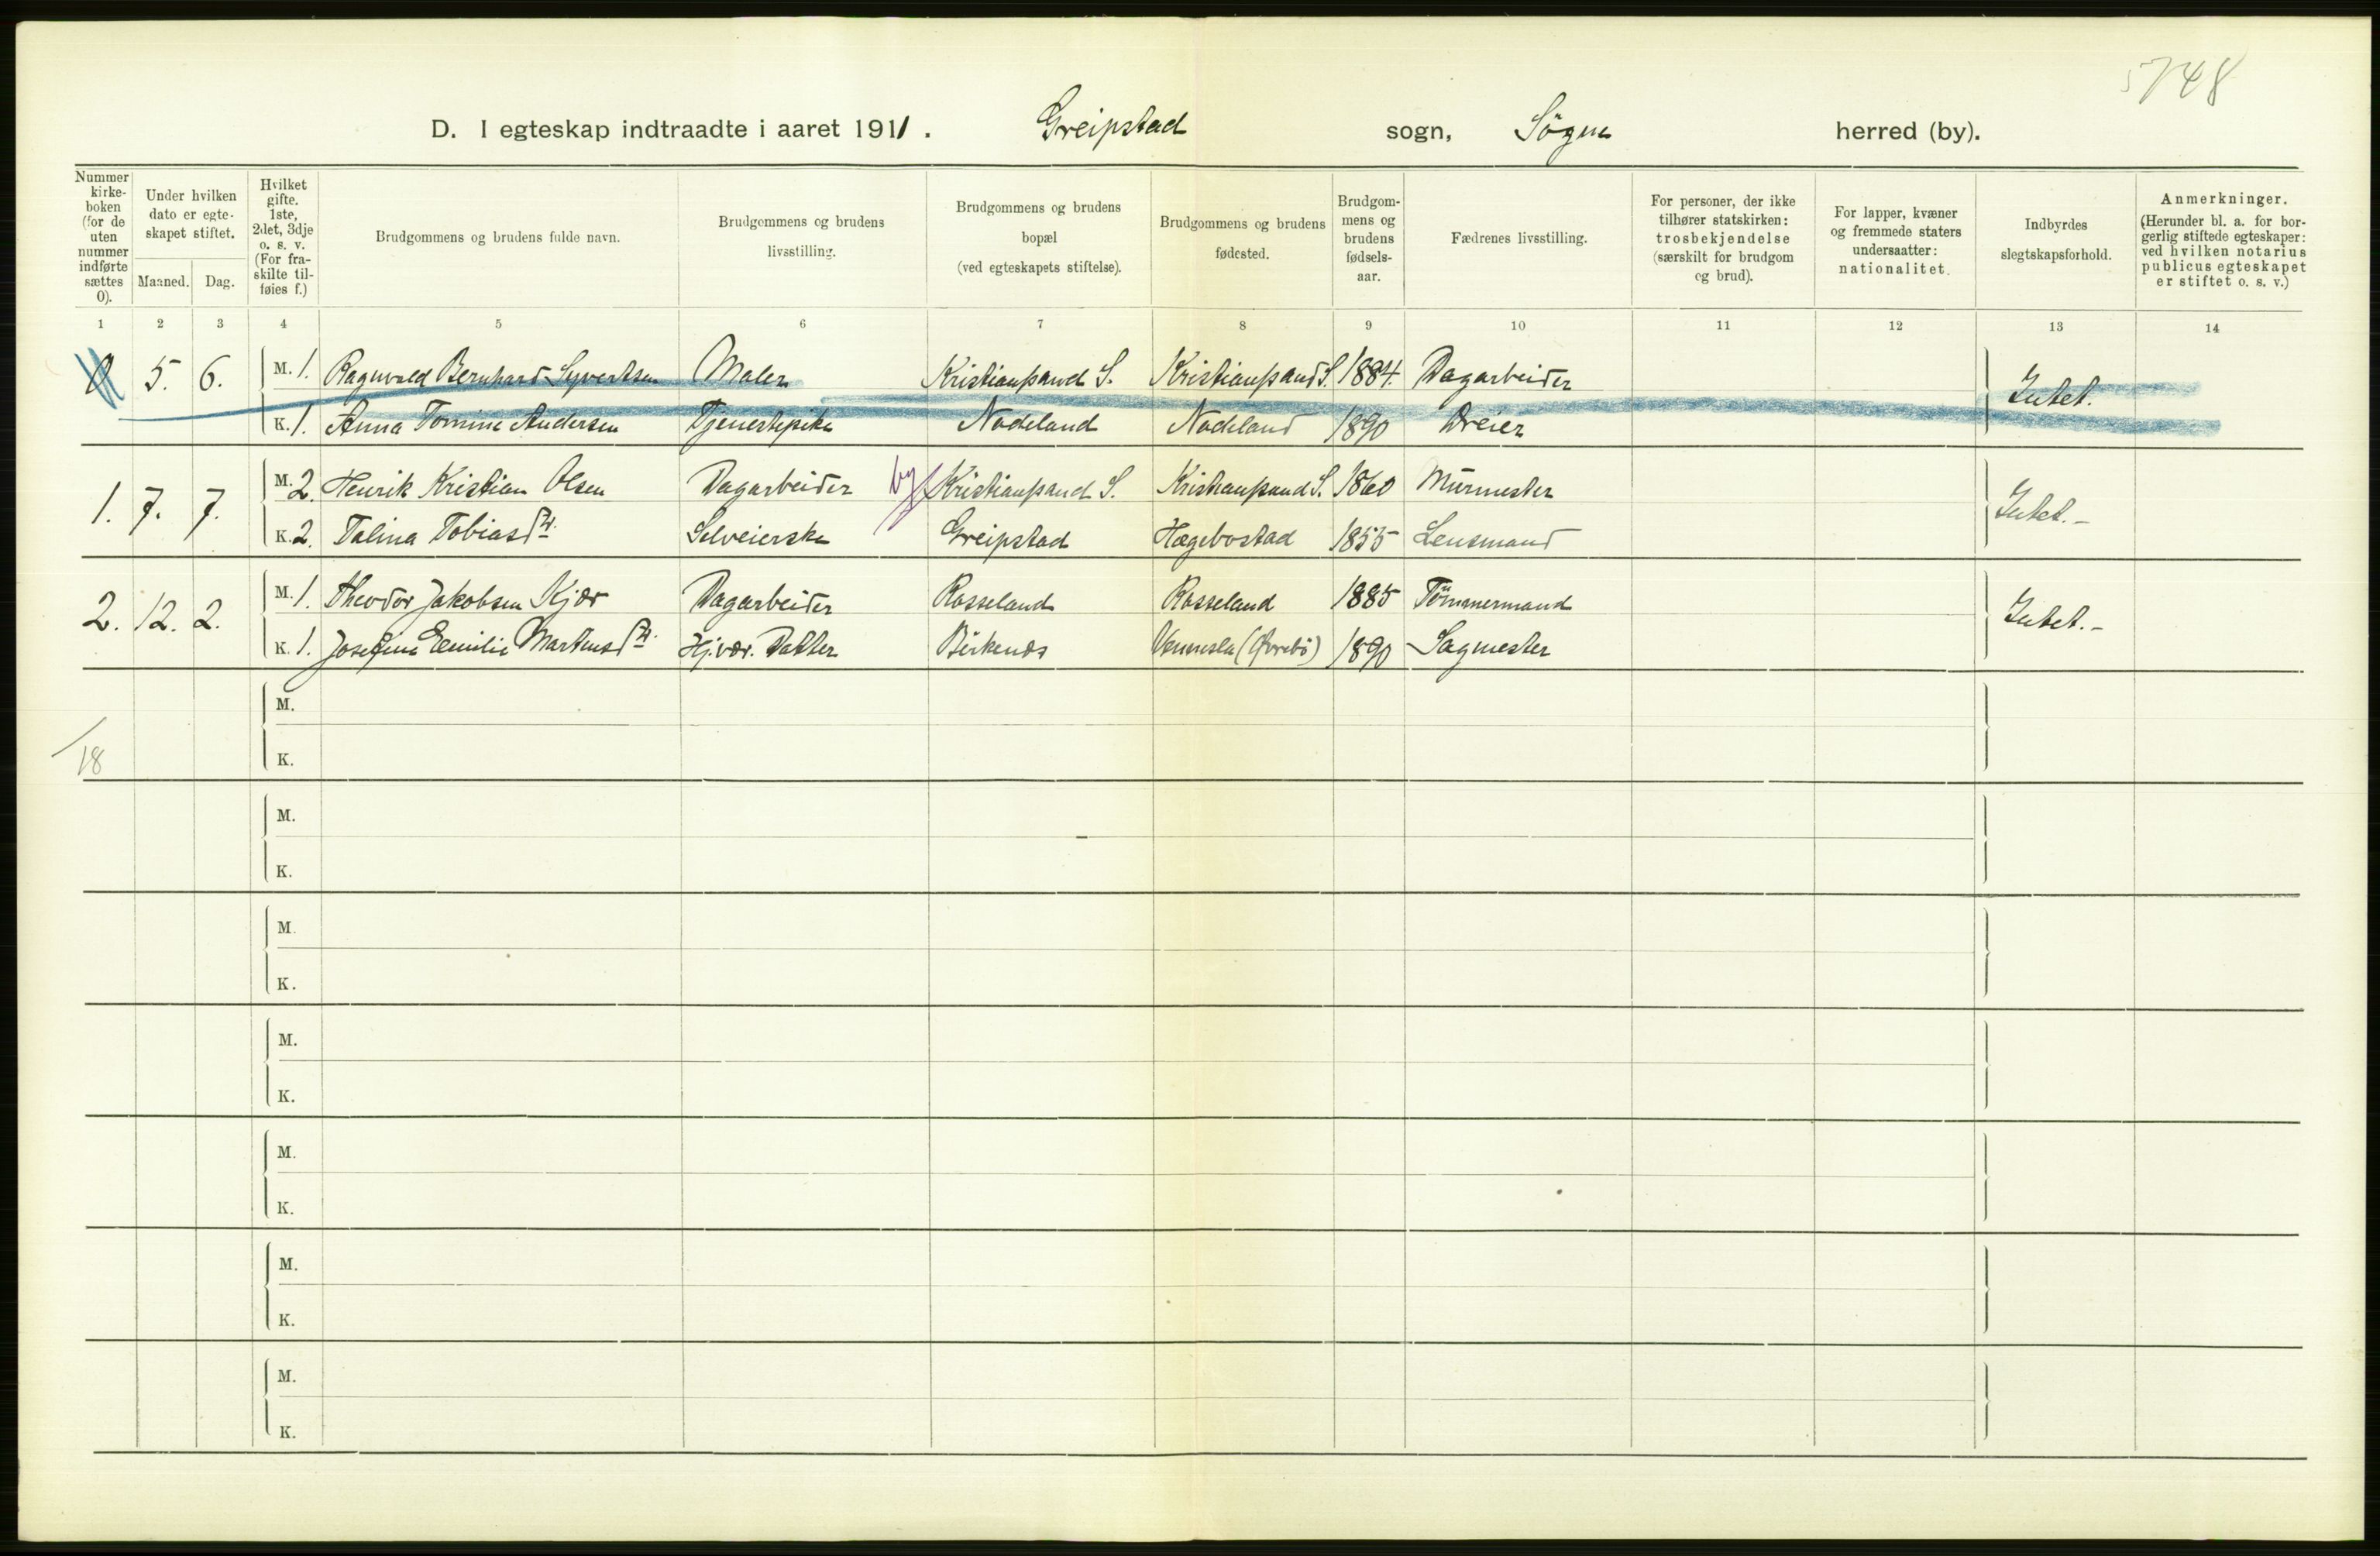 5748
D. I egteskap indtraadte i aaret 1911. Greipstad sogn, Søgne herred (by).
Nummer kirkeboken (for de uten nummer indførte sættes 0).
Under hvilken dato er egteskapet stiftet.
Maaned. Dag.
Hvilket gifte. 1ste, 2det, 3dje o. s. v. (For fraskilte tilføies f.)
Brudgommens og brudens fulde navn.
Brudgommens og brudens livsstilling.
Brudgommens og brudens bopæl (ved egteskapets stiftelse).
Brudgommens og brudens fødested.
Brudgommens og brudens fødselsaar.
Fædrenes livsstilling.
For personer, der ikke tilhører statskirken: trosbekjendelse (særskilt for brudgom og brud).
For lapper, kvæner og fremmede staters undersaatter: nationalitet.
Indbyrdes slegtskapsforhold.
Anmerkninger. (Herunder bl. a. for borgerlig stiftede egteskaper: ved hvilken notarius publicus egteskapet er stiftet o. s. v.)
1 2 3 4 5 6 7 8 9 10 11 12 13 14
0 5. 6. M. 1. Ragnvald Bernhard Syvertsen Maler Kristianssand S. Kristianssand S. 1884. Dagarbeider Intet.
K. 1. Anna Tomine Andersen Tjenestepike Nodeland Nodeland 1890 Dreier
1. 7. 7. M. 2. Henrik Kristian Olsen Dagarbeider by Kristianssand S. Kristianssand S. 1860 Murmester Intet.-
K. 2. Talina Tobiasdtr. Selveierske Greipstad Hægebostad 1855 Lensmand
2. 12. 2. M. 1. Theodor Jakobsen Kjær Dagarbeider Rosseland Rosseland 1885 Tömmermand Intet.-
K. 1. Josefine Emilie Martensdtr. Hj. vær. Datter Birkenes Vennesla (Øvrebö) 1890 Sagmester
M.
18
K.
M.
K.
M.
K.
M.
K.
M.
K.
M.
K.
M.
K.